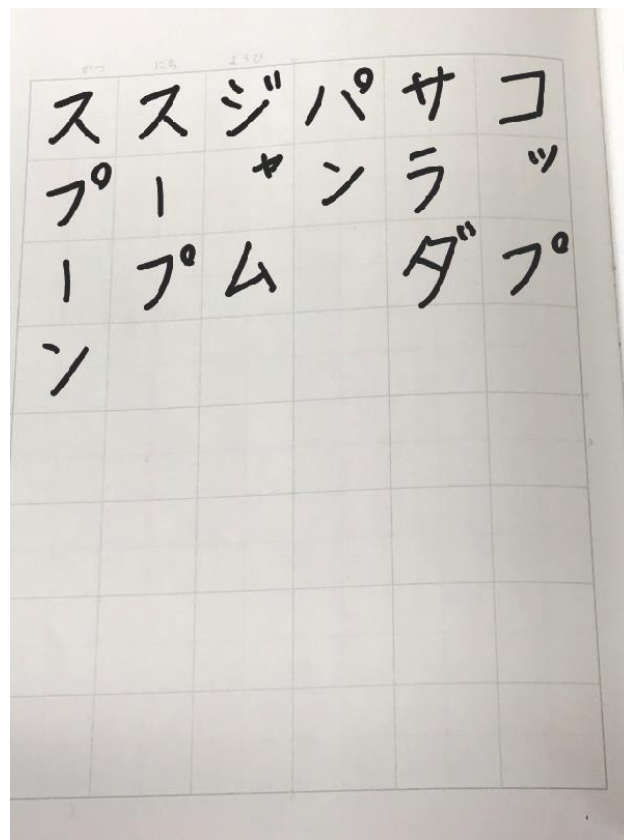 がつ にち ようび
コップ
サラダ
パン
ジャム
スープ
スプーン